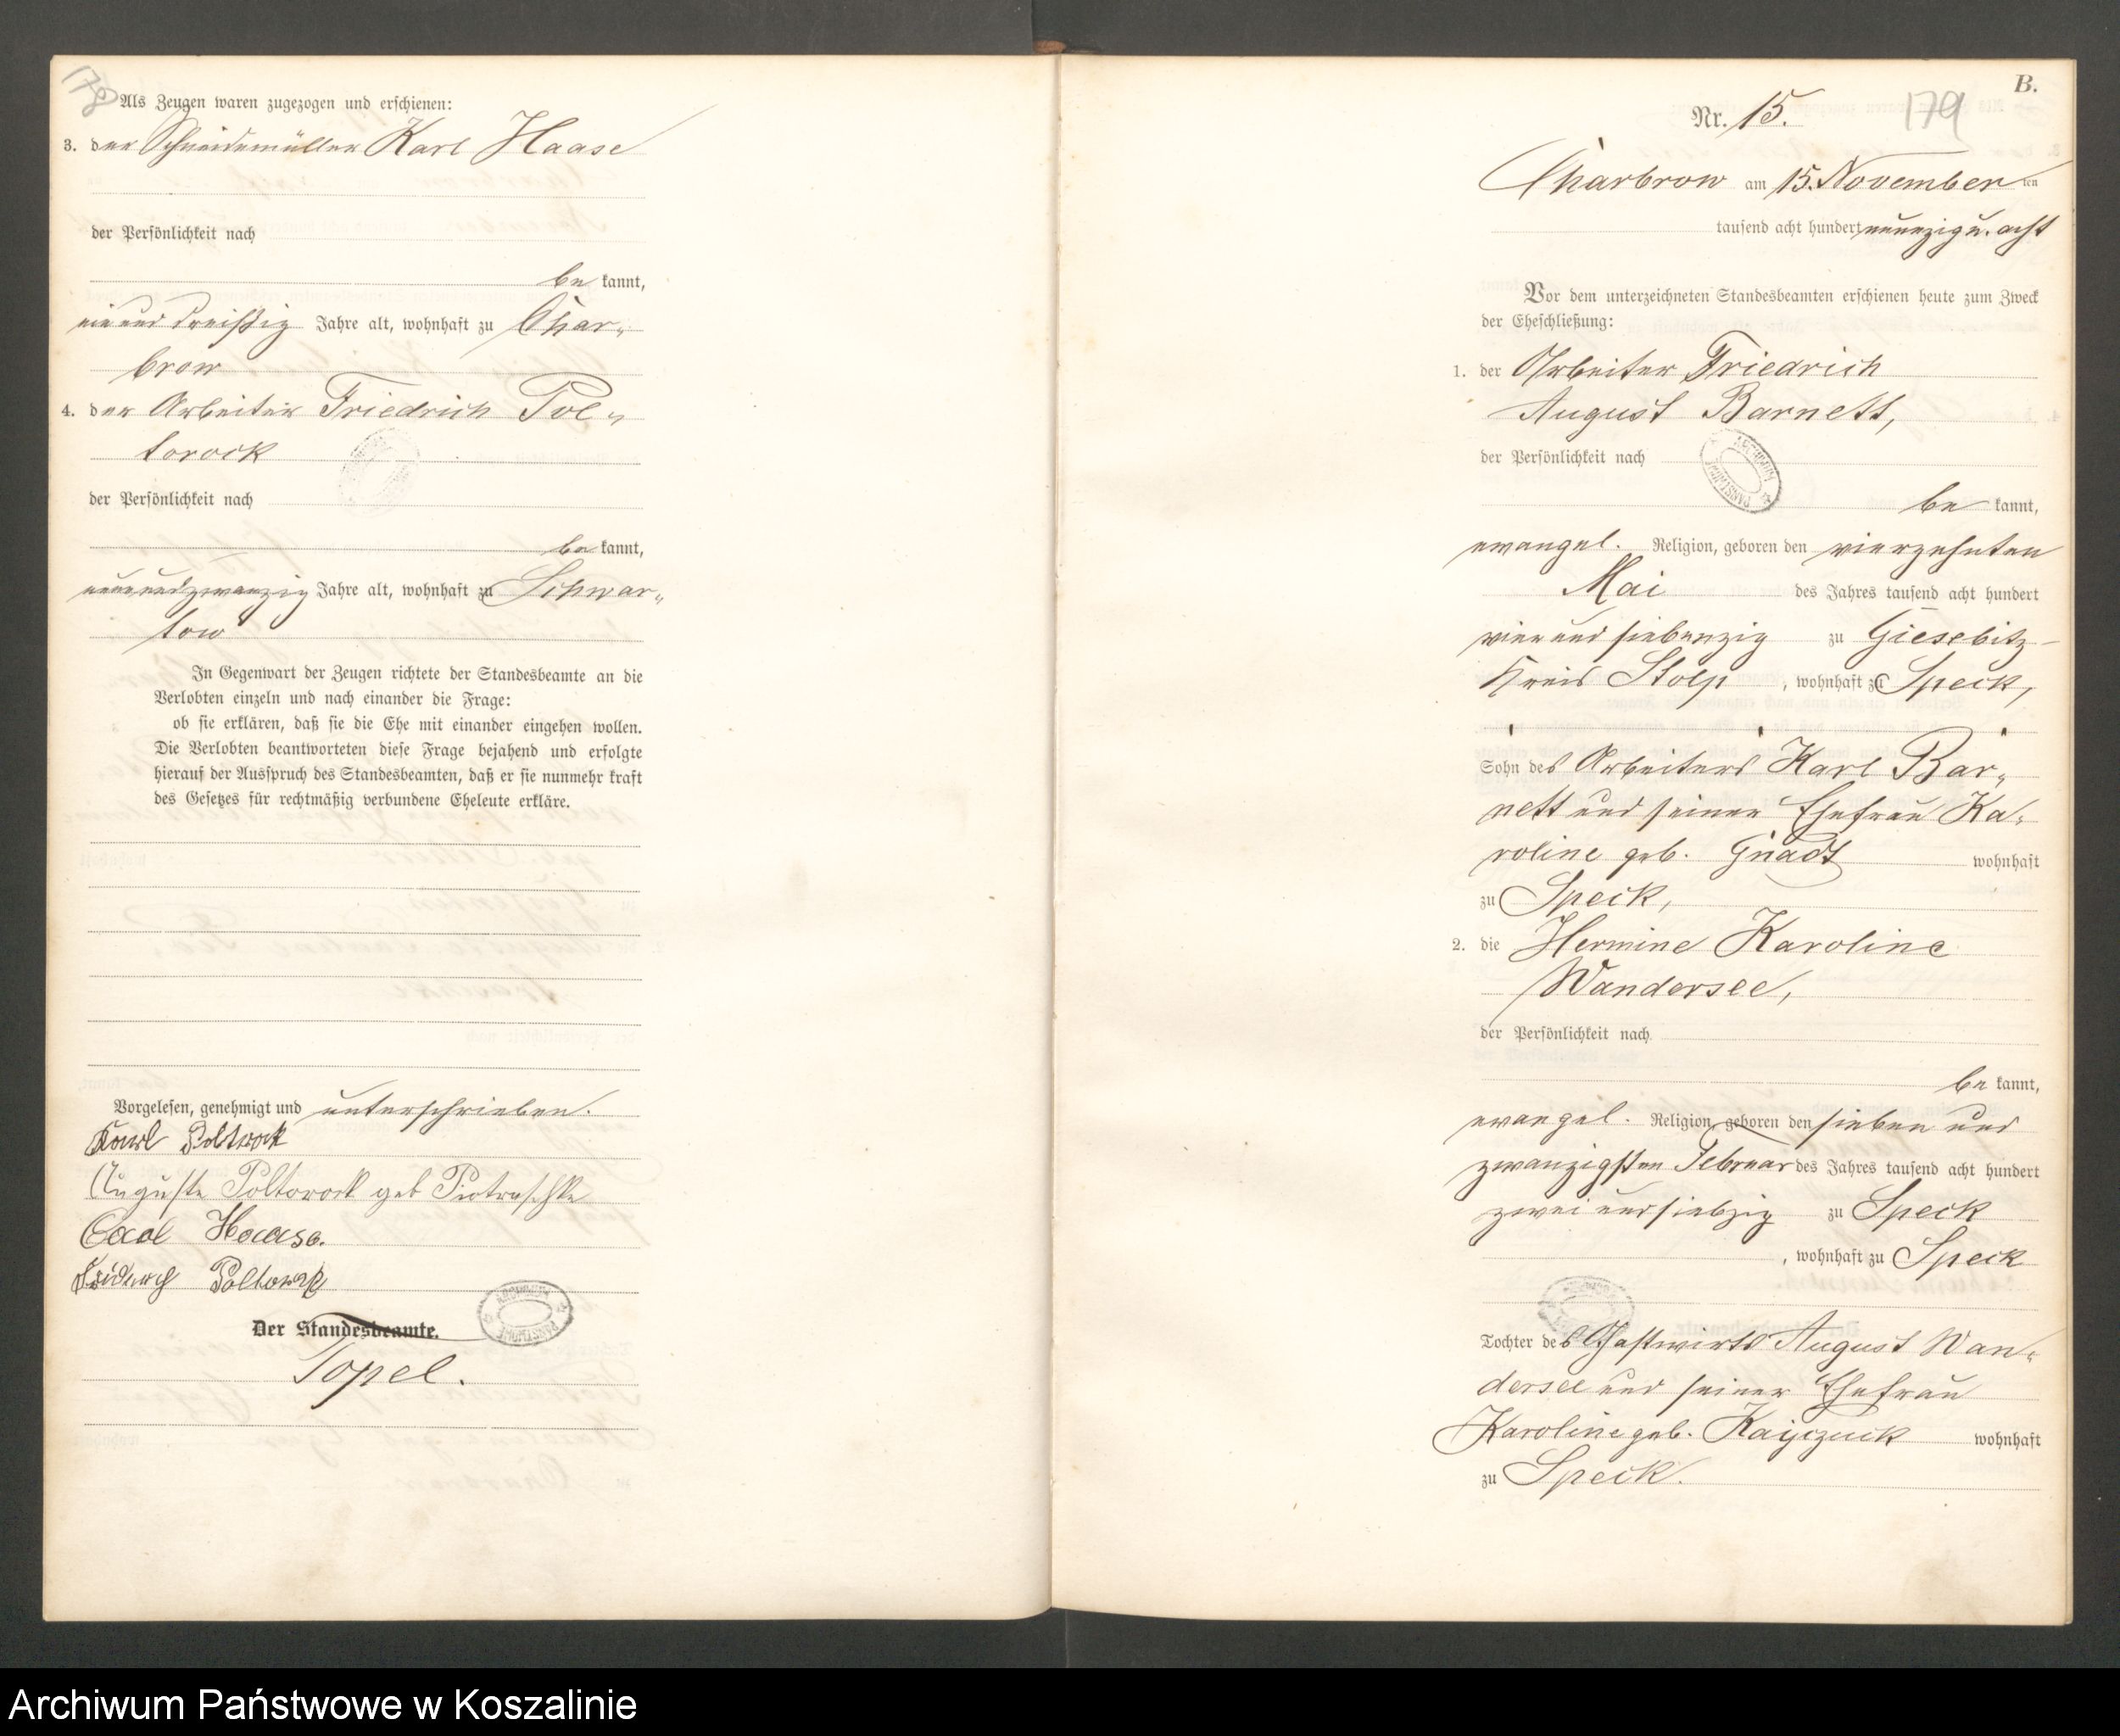 178
Als Zeugen waren zugezogen und erschienen:
3. der Schneidemüller Karl Haase
der Persönlichkeit nach
be kannt,
ein und dreißig Jahre alt, wohnhaft zu Char-
brow
4. der Arbeiter Friedrich Pol-
torock
der Persönlichkeit nach
be kannt,
neunundzwanzig Jahre alt, wohnhaft zu Schwar-
tow
In Gegenwart der Zeugen richtete der Standesbeamte an die
Verlobten einzeln und nach einander die Frage:
ob sie erklären, daß sie die Ehe mit einander eingehen wollen.
Die Verlobten beantworteten diese Frage bejahend und erfolgte
hierauf der Ausspruch des Standesbeamten, daß er sie nunmehr kraft
des Gesetzes für rechtmäßig verbundene Eheleute erkläre.
Vorgelesen, genehmigt und unterschrieben.
Karl Poltorock
Auguste Poltorock geb Piotraschke
Carl Haase.
Friedrich Poltorock
Der Standesbeamte.
Topel.
B.
Nr. 15.
179
Charbrow am 15. November ten
tausend acht hundert neunzig u. acht
Vor dem unterzeichneten Standesbeamten erschienen heute zum Zweck
der Eheschließung:
1. der Arbeiter Friedrich
August Barnett,
der Persönlichkeit nach
be kannt,
evangel. Religion, geboren den vierzehnten
Mai des Jahres tausend acht hundert
vier und siebenzig zu Giesebitz
Kreis Stolp, wohnhaft zu Speck,
Sohn des Arbeiters Karl Bar-
nett und seiner Ehefrau Ka-
roline geb. Gnadt wohnhaft
zu Speck,
2. die Hermine Karoline
Wandersee,
der Persönlichkeit nach
be kannt,
evangel. Religion, geboren den sieben und
zwanzigsten Februar des Jahres tausend acht hundert
zwei und siebzig zu Speck
, wohnhaft zu Speck
Tochter des Gastwirts August Wan-
dersee und seiner Ehefrau
Karoline geb. wohnhaft
zu Speck.
Archiwum Państwowe w Koszalinie